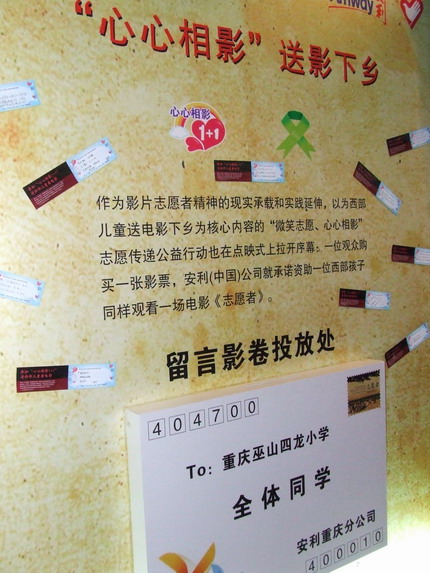 Amway
安利
“心心相影”送影下乡
心心相影
1+1
作为影片志愿者精神的现实承载和实践延伸，以为西部
儿童送电影下乡为核心内容的“微笑志愿、心心相影”
志愿传递公益行动也在点映式上拉开序幕：一位观众购
买一张影票，安利(中国)公司就承诺资助一位西部孩子
同样观看一场电影《志愿者》。
留言影卷投放处
404700
To: 重庆巫山四龙小学
全体同学
安利重庆分公司
400010